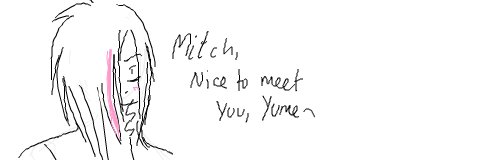 Mitch,
Nice to meet
you, Yume~